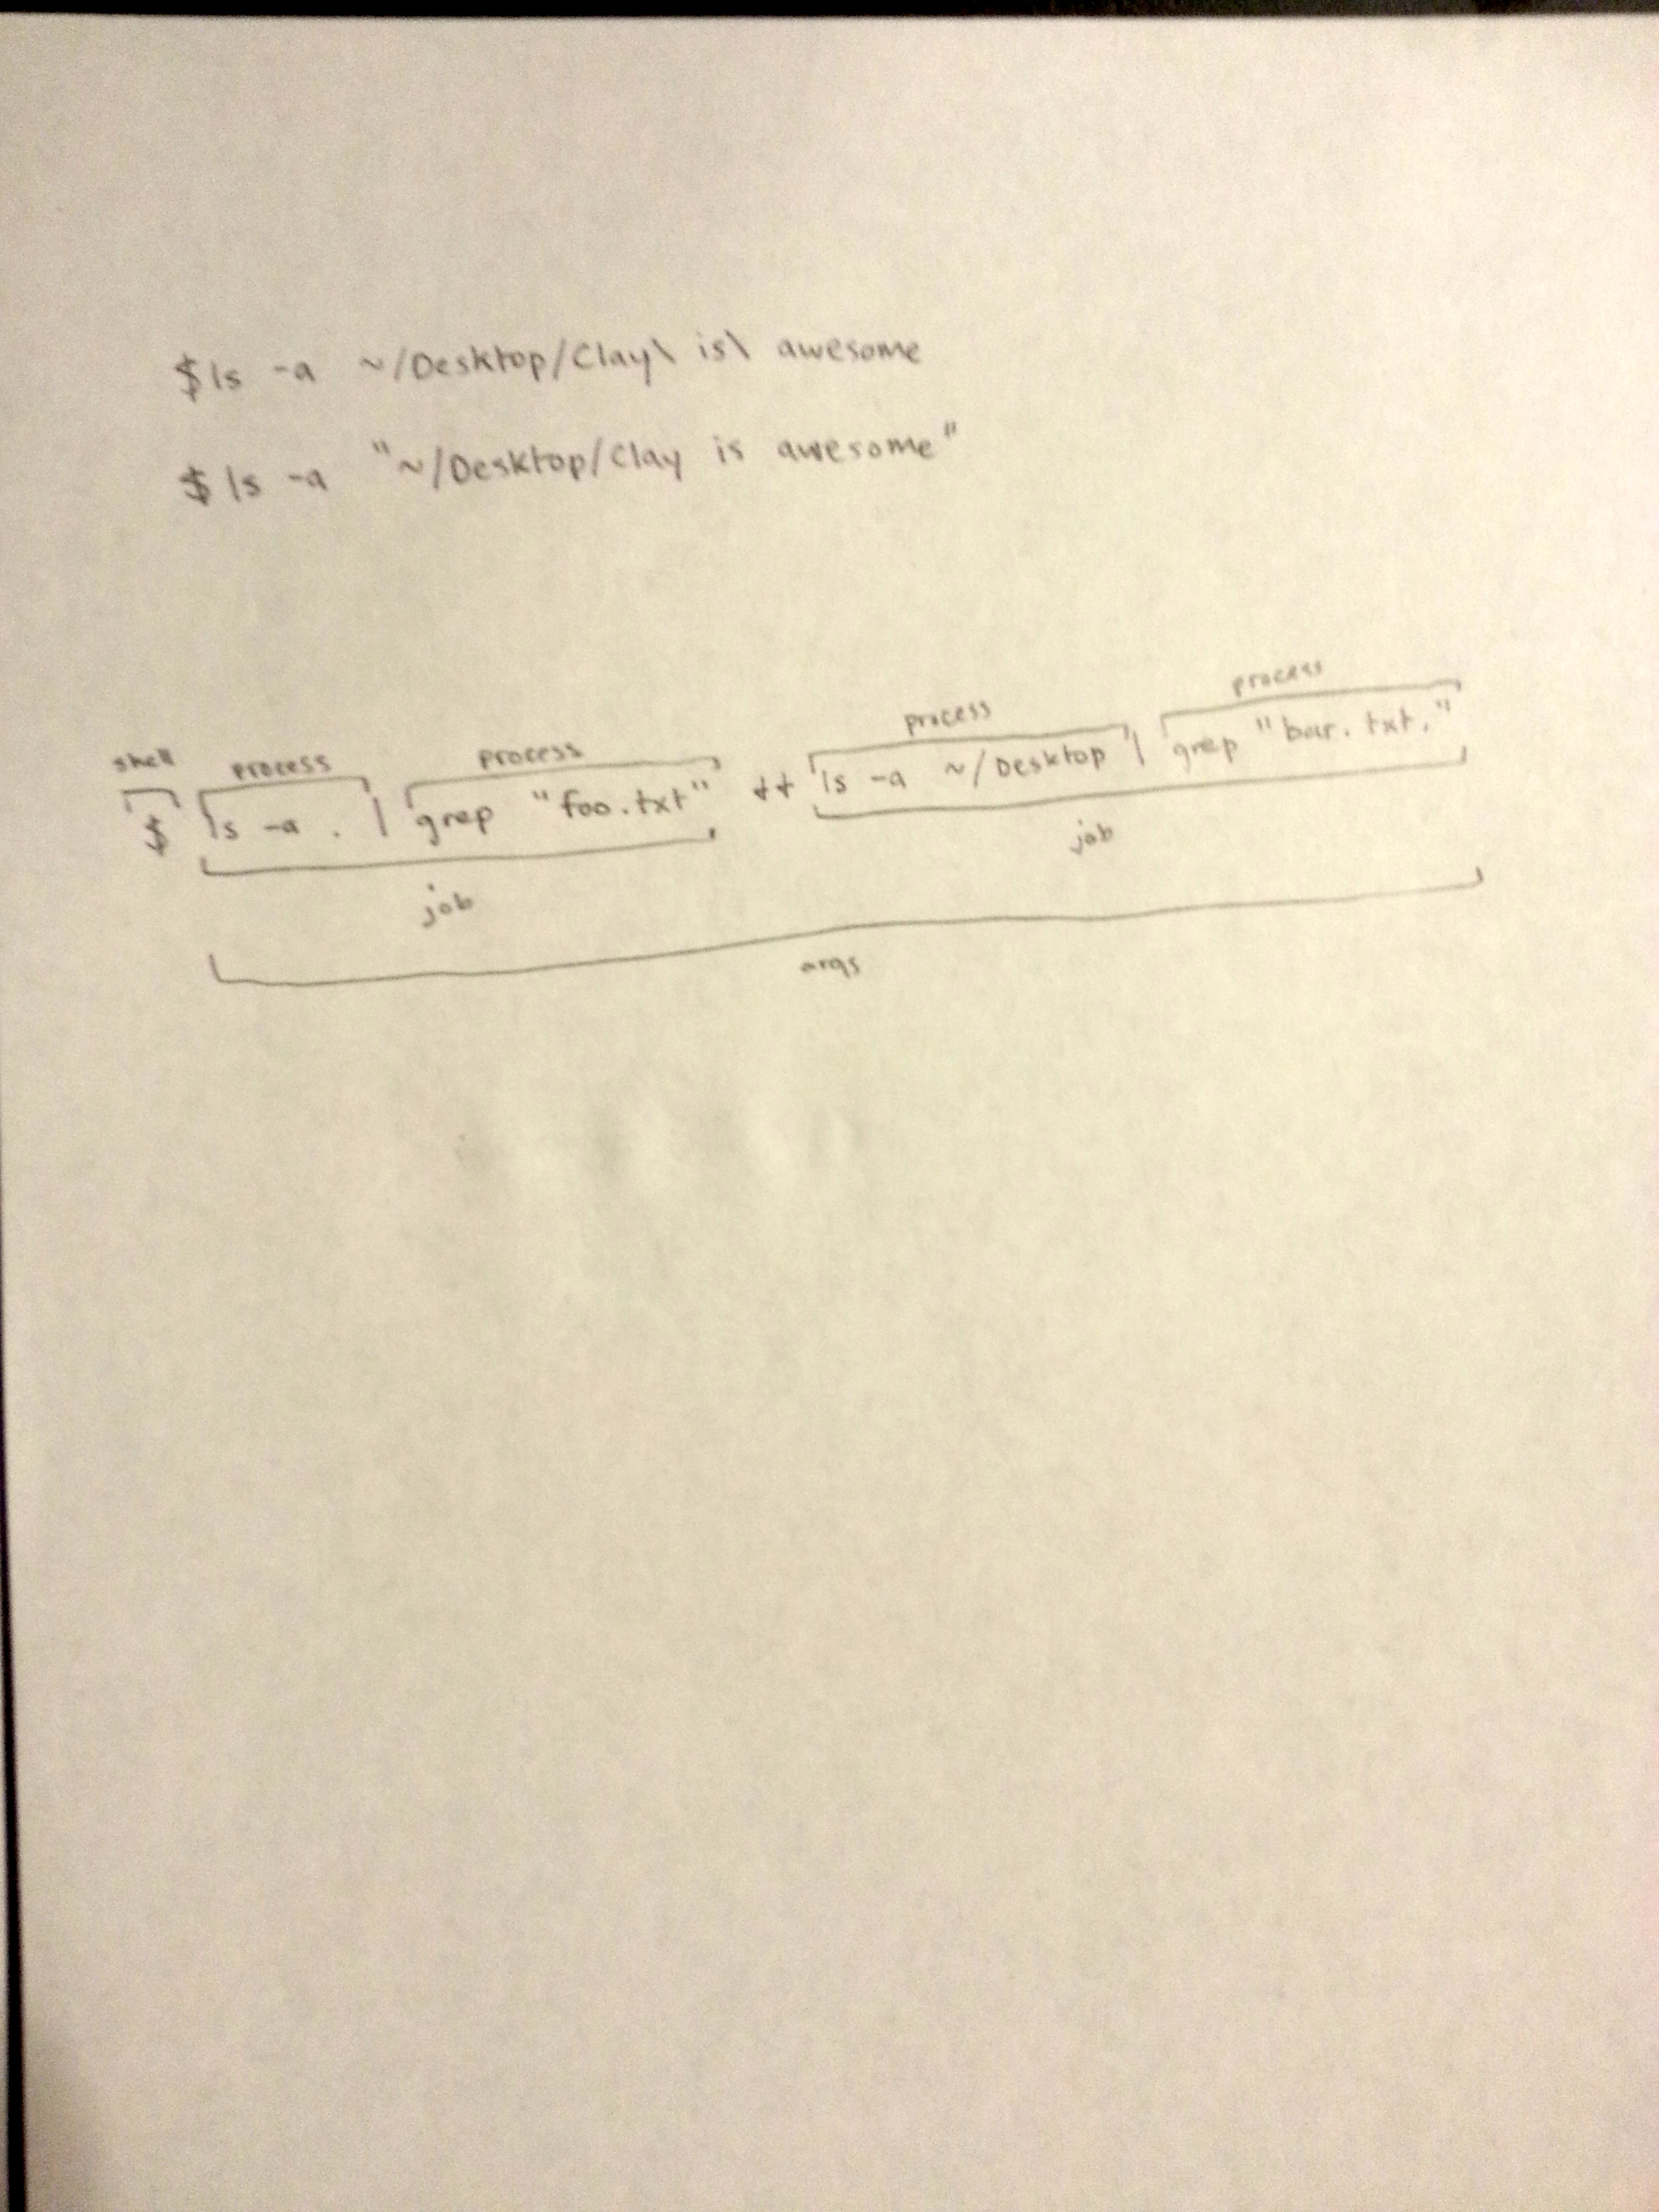 $ ls -a ~/Desktop/Clay\ is\ awesome
$ ls -a "~/Desktop/Clay is awesome"
shell process process process process
$ ls -a . | grep "foo.txt" && ls -a ~/Desktop | grep "bar.txt."
job job
args